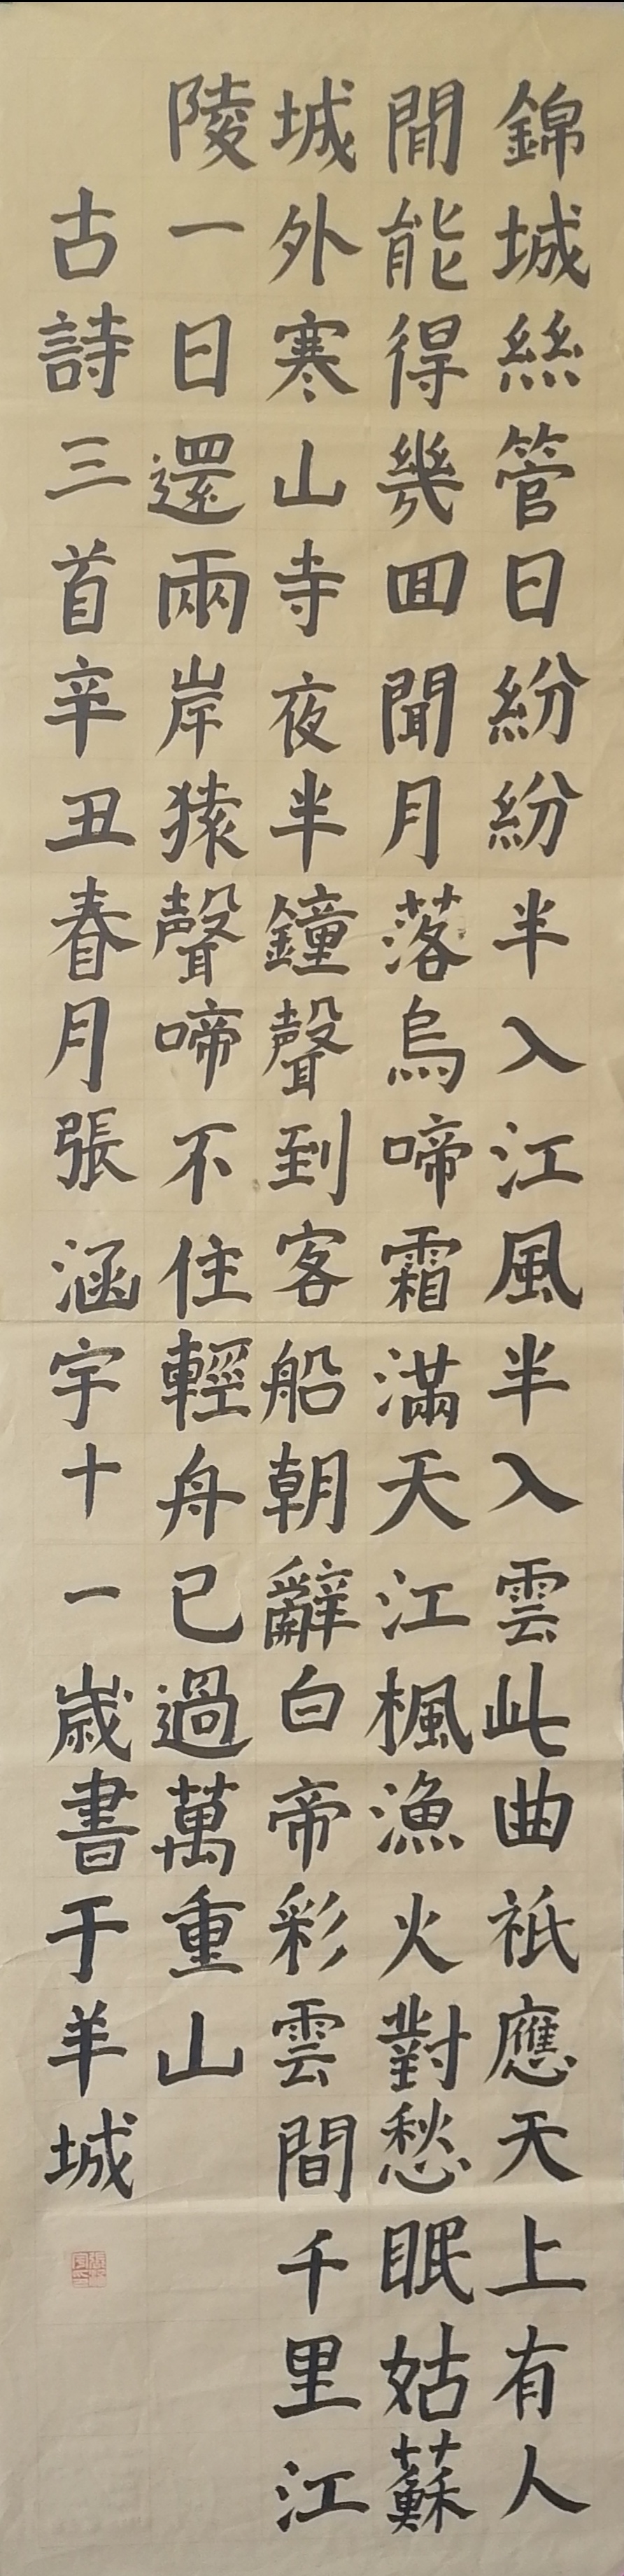 錦城絲管日紛紛半入江風半入雲此曲祇應天上有人
間能得幾回聞月落烏啼霜滿天江楓漁火對愁眠姑蘇
城外寒山寺夜半鐘聲到客船朝辭白帝彩雲間千里江
陵一日還兩岸猿聲啼不住輕舟已過萬重山
古詩三首辛丑春月張涵宇十一歲書于羊城